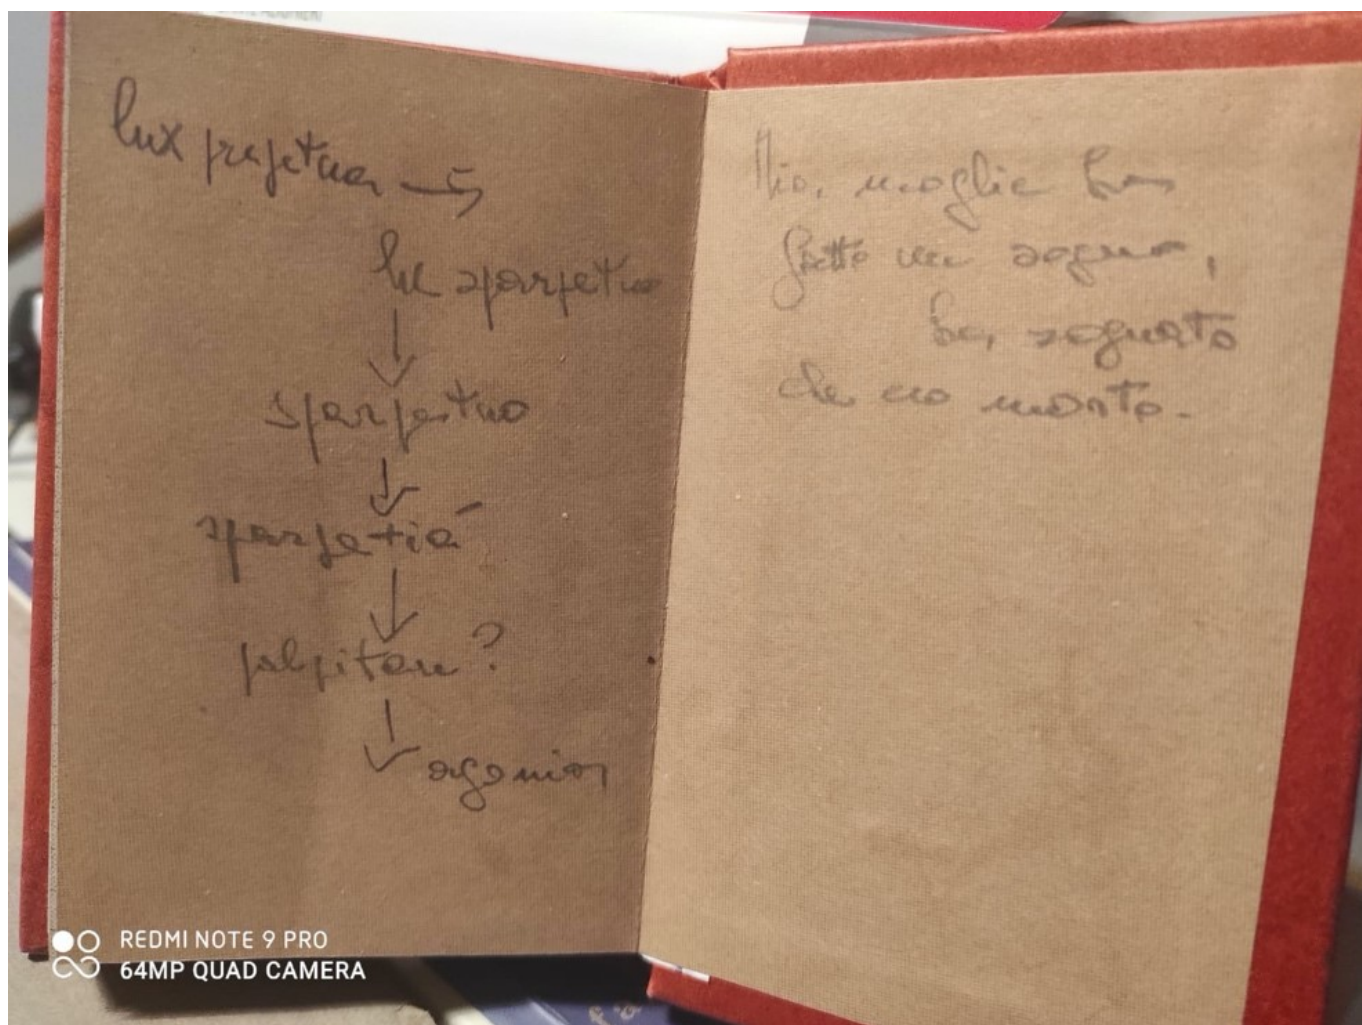 lux perpetua →
lu sparpetuo
↓
sparpetuo
↓
sparpatiá
↓
palpitare?
↓
agonia
Mia moglie ha
fatto un sogno,
ha sognato
che ero morto.
REDMI NOTE 9 PRO
64MP QUAD CAMERA